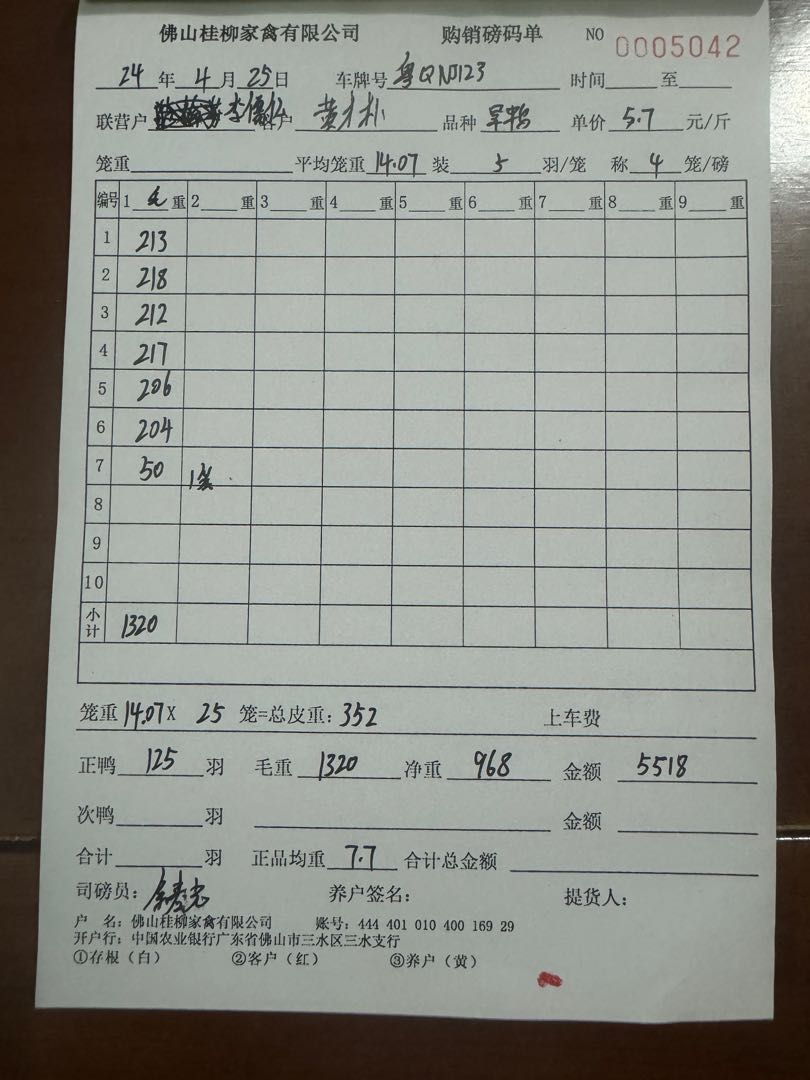 佛山桂柳家禽有限公司 购销磅码单 NO 0005042
24 年 4 月 25 日 车牌号 粤QN0123 时间 至
联营户 客户 黄才朴 品种 单价 5.7 元/斤
笼重 平均笼重 14.07 装 5 羽/笼 称 4 笼/磅
编号 1 毛 重 2 重 3 重 4 重 5 重 6 重 7 重 8 重 9 重
1 213
2 218
3 212
4 217
5 206
6 204
7 50 1笼
8
9
10
小计 1320
笼重 14.07 X 25 笼=总皮重: 352 上车费
正鸭 125 羽 毛重 1320 净重 968 金额 5518
次鸭 羽 金额
合计 羽 正品均重 7.7 合计总金额
司磅员: 养户签名: 提货人:
户 名: 佛山桂柳家禽有限公司 账号: 444 401 010 400 169 29
开户行: 中国农业银行广东省佛山市三水区三水支行
①存根（白） ②客户（红） ③养户（黄）